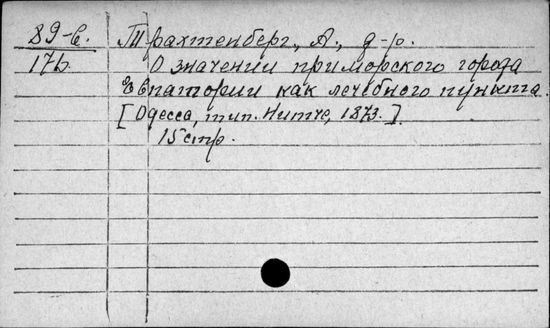 89-6. Трахтенберг, А., д-р.
17б. О значении приморского города
Евпатории как лечебного пункта.
[Одесса, тип. Нитче, 1873.]
15 стр.